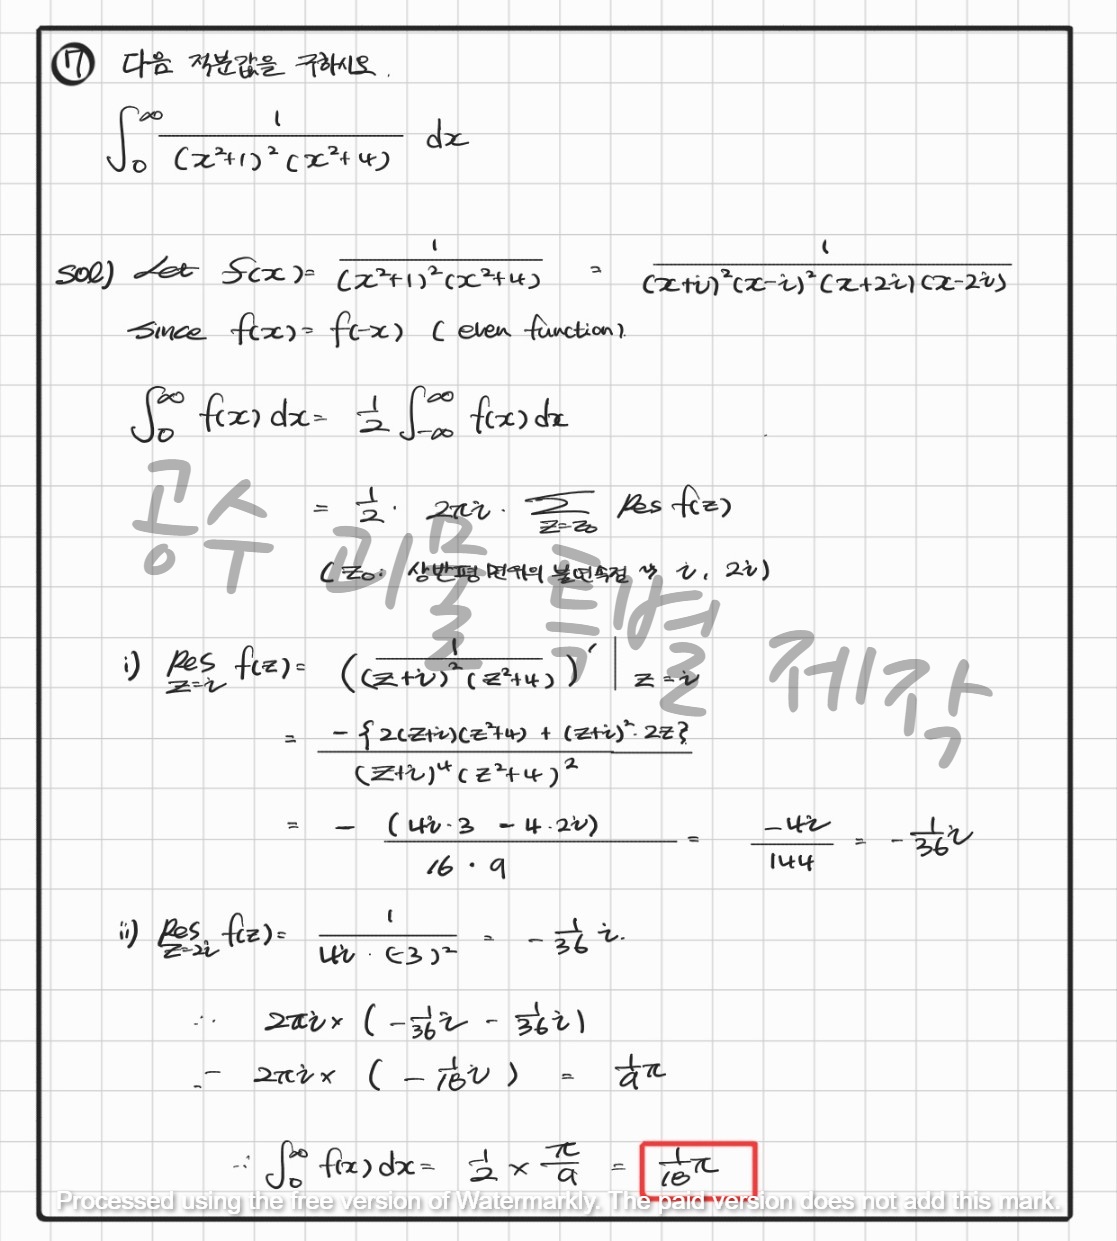 ⑰ 다음 적분값을 구하시오.
∫₀^∞ 1/((x²+1)²(x²+4)) dx
sol) Let f(x)= 1/((x²+1)²(x²+4)) = 1/((x+i)²(x-i)²(x+2i)(x-2i))
Since f(x)= f(-x) (even function).
∫₀^∞ f(x)dx= 1/2 ∫_{-∞}^∞ f(x)dx
= 1/2 · 2πi · Σ_{z=z₀} Res f(z)
(z₀: 상반평면위의 불연속점 → i, 2i)
공수 괴물 특별 제작
i) Res_{z=i} f(z)= (1/((z+i)²(z²+4)))′ | z=i
= -{2(z+i)(z²+4) + (z+i)²·2z}/((z+i)⁴(z²+4)²)
= - (4i·3 - 4·2i)/(16·9) = -4i/144 = -1/36 i
ii) Res_{z=2i} f(z)= 1/(4i·(-3)²) = -1/36 i.
∴ 2πi× (-1/36 i - 1/36 i)
= 2πi× (-1/18 i) = 1/9 π
∴ ∫₀^∞ f(x)dx= 1/2 × π/9 = 1/18 π
Processed using the free version of Watermarkly. The paid version does not add this mark.